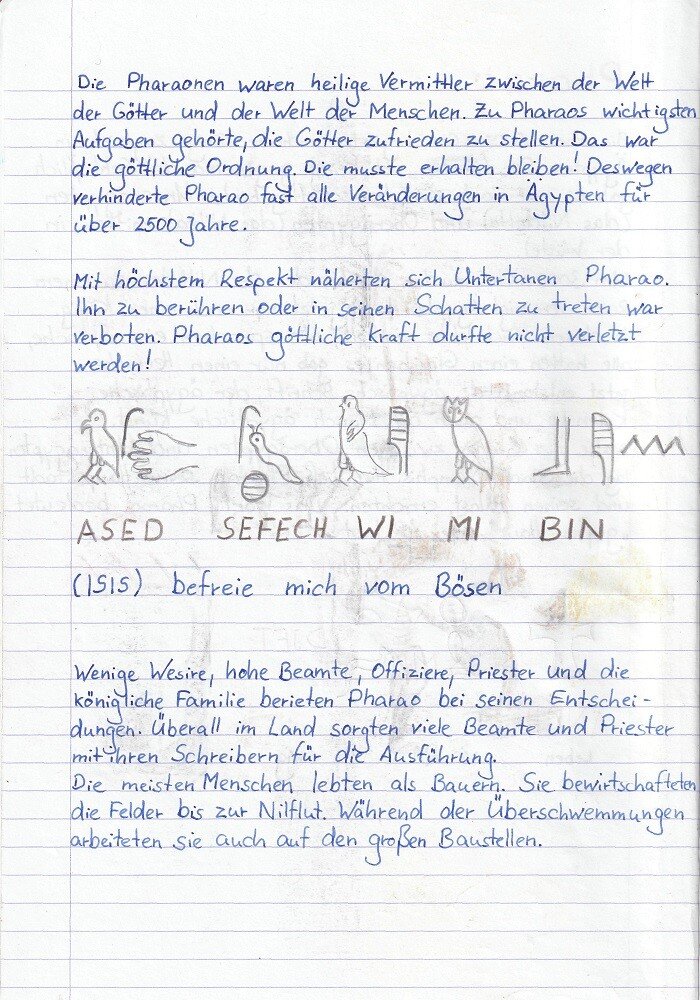 Die Pharaonen waren heilige Vermittler zwischen der Welt
der Götter und der Welt der Menschen. Zu Pharaos wichtigsten
Aufgaben gehörte, die Götter zufrieden zu stellen. Das war
die göttliche Ordnung. Die musste erhalten bleiben! Deswegen
verhinderte Pharao fast alle Veränderungen in Ägypten für
über 2500 Jahre.
Mit höchstem Respekt näherten sich Untertanen Pharao.
Ihn zu berühren oder in seinen Schatten zu treten war
verboten. Pharaos göttliche Kraft durfte nicht verletzt
werden!
ASED SEFECH WI MI BIN
(ISIS) befreie mich vom Bösen
Wenige Wesire, hohe Beamte, Offiziere, Priester und die
königliche Familie berieten Pharao bei seinen Entschei-
dungen. Überall im Land sorgten viele Beamte und Priester
mit ihren Schreibern für die Ausführung.
Die meisten Menschen lebten als Bauern. Sie bewirtschafteten
die Felder bis zur Nilflut. Während der Überschwemmungen
arbeiteten sie auch auf den großen Baustellen.